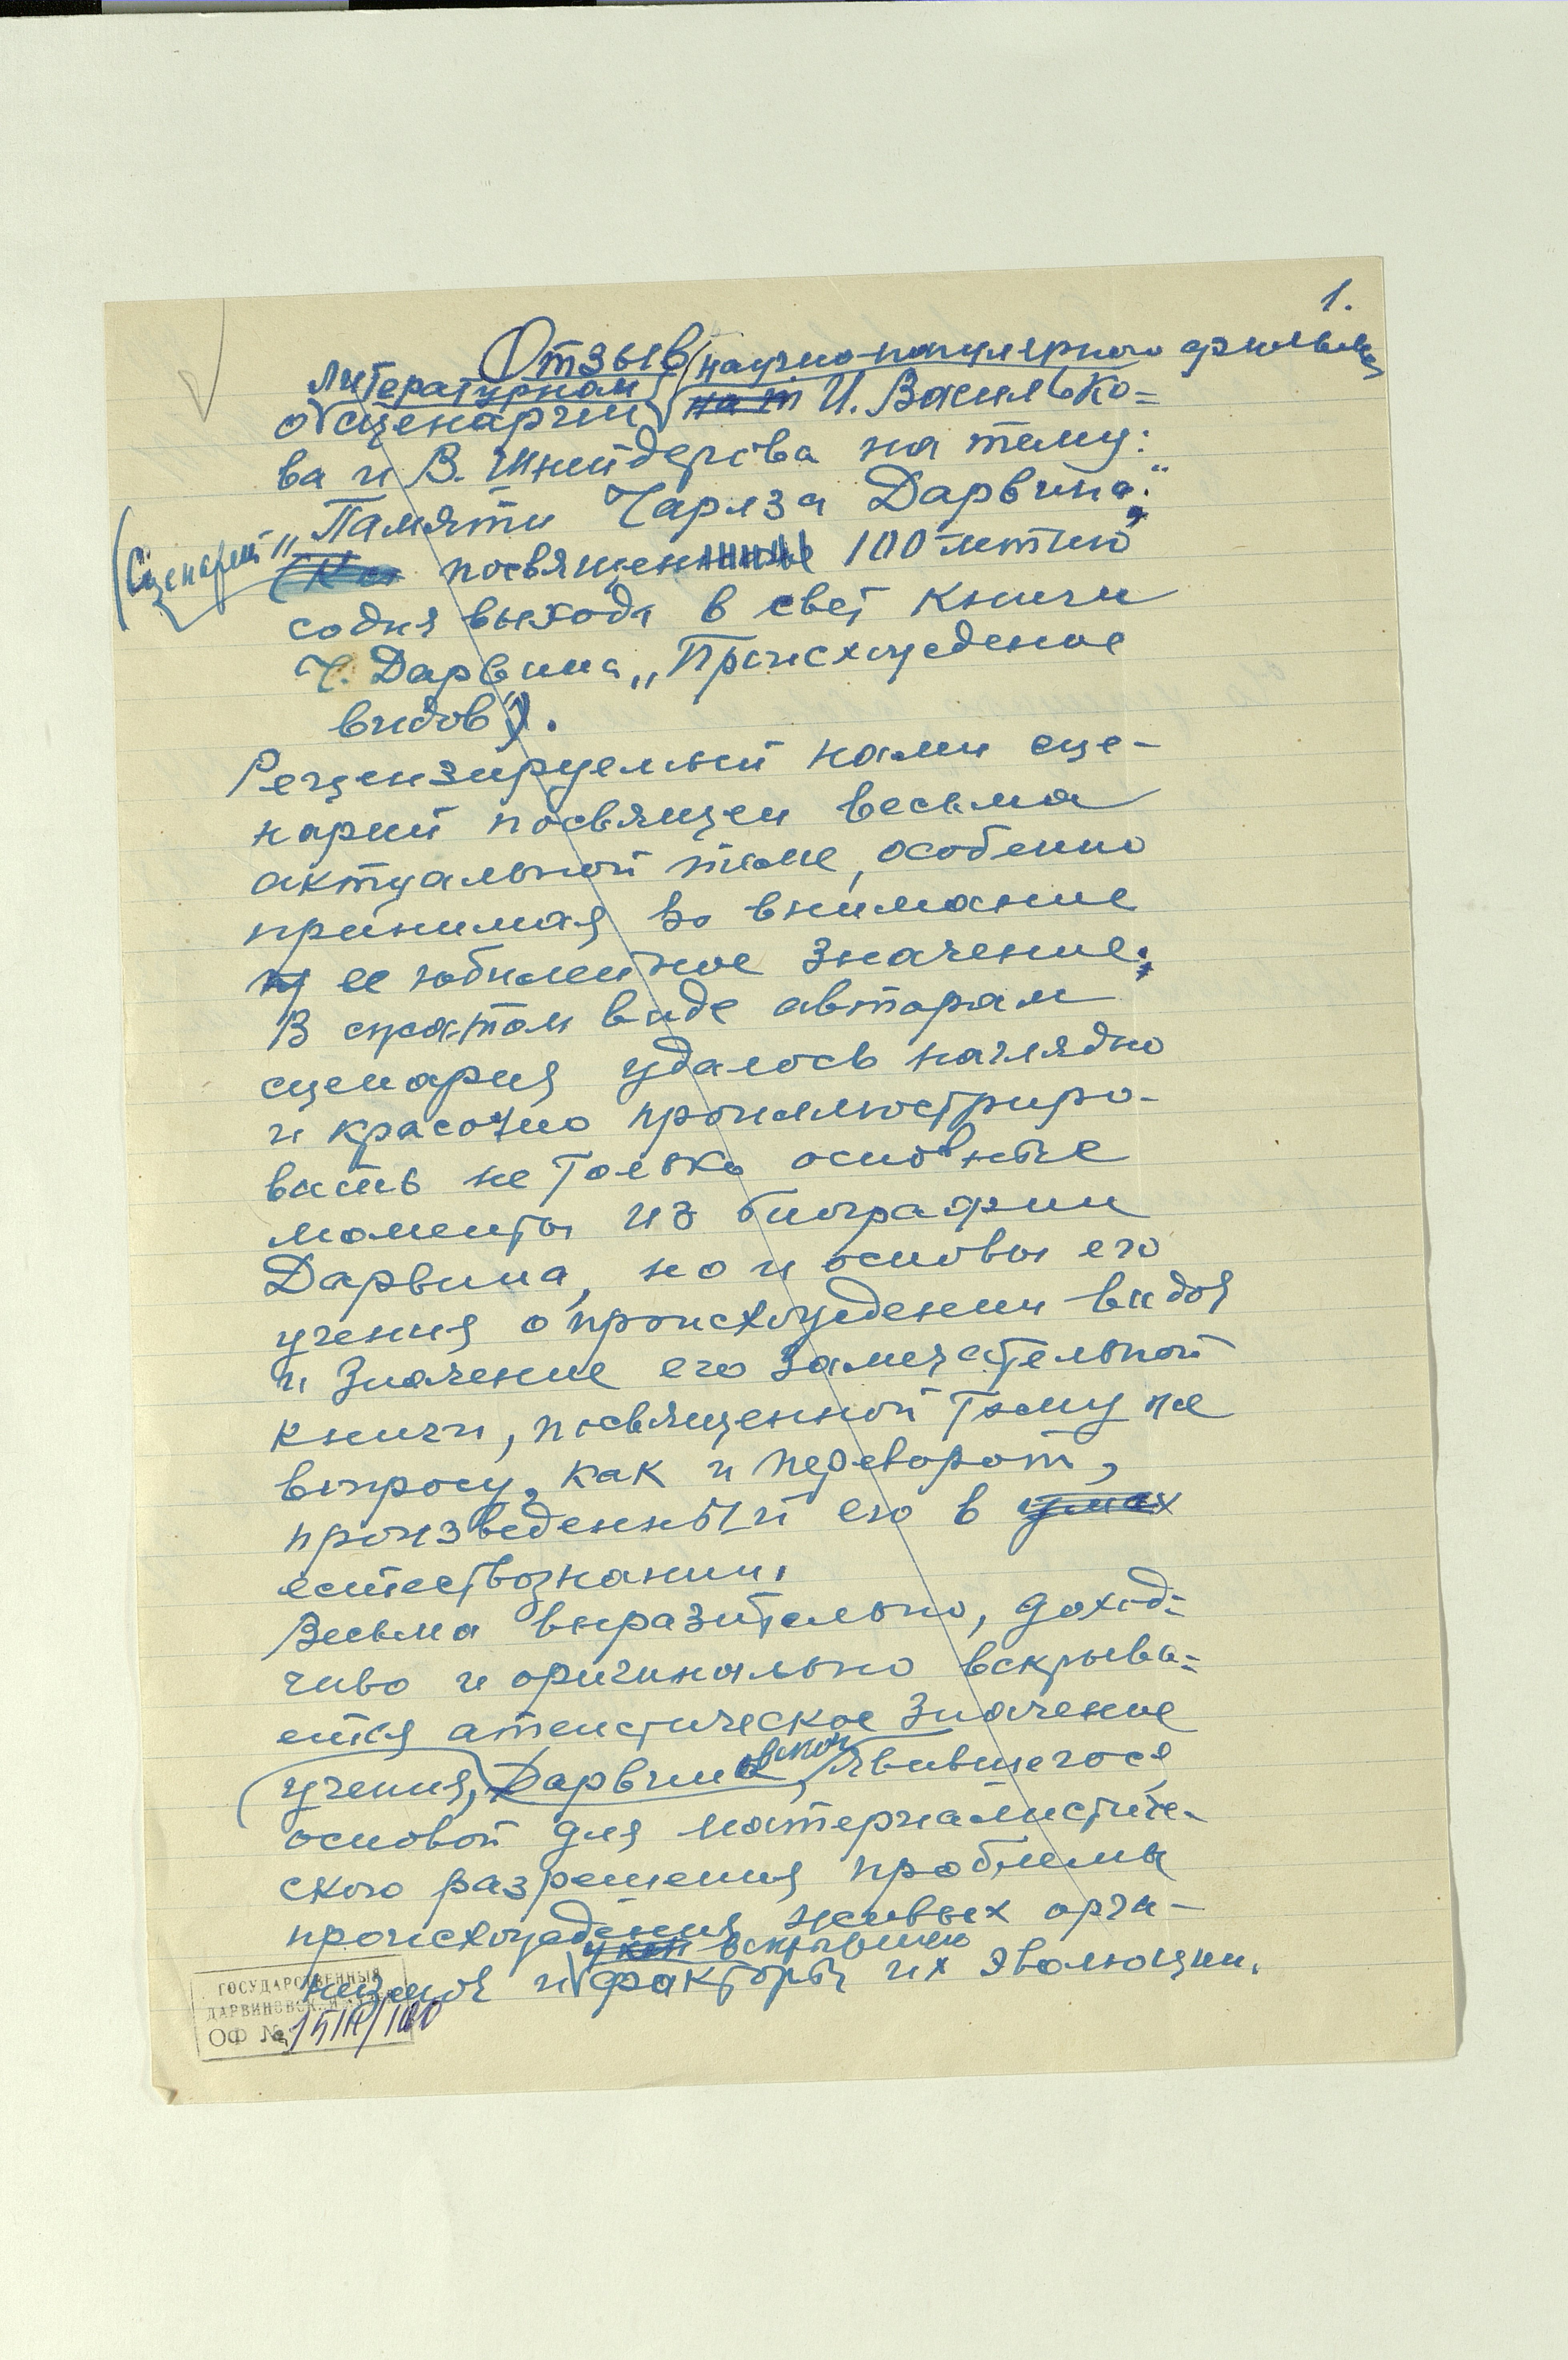 1.
Отзыв
литературном научно-популярного фильма
о сценарии на т И. Василько=
ва и В. Шнейдерова на тему:
„Памяти Чарлза Дарвина."
(Сценарий посвящен 100-летию
со дня выхода в свет книги
Ч. Дарвина „Происхождение
видов").
Рецензируемый нами сце-
нарий посвящен весьма
актуальной теме, особенно
принимая во внимание
ее юбилейное значение.
В сжатом виде авторам
сценария удалось наглядно
и красочно проиллюстриро-
вать не только основные
моменты из биографии
Дарвина, но и основы его
учения о происхождении видов
и значение его замечательной
книги, посвященной тому же
вопросу, как и переворот,
произведенный ею в умах
естествознании.
Весьма выразительно, доход=
чиво и оригинально вскрыва=
ется атеистическое значение
учения, Дарвиновского, явившегося
основой для материалистиче-
ского разрешения проблемы
происхождения живых орга-
вскрывшего
низмов и факторы их эволюции.
ГОСУДАРСТВЕННЫЙ
ДАРВИНОВСКИЙ МУЗЕЙ
ОФ №